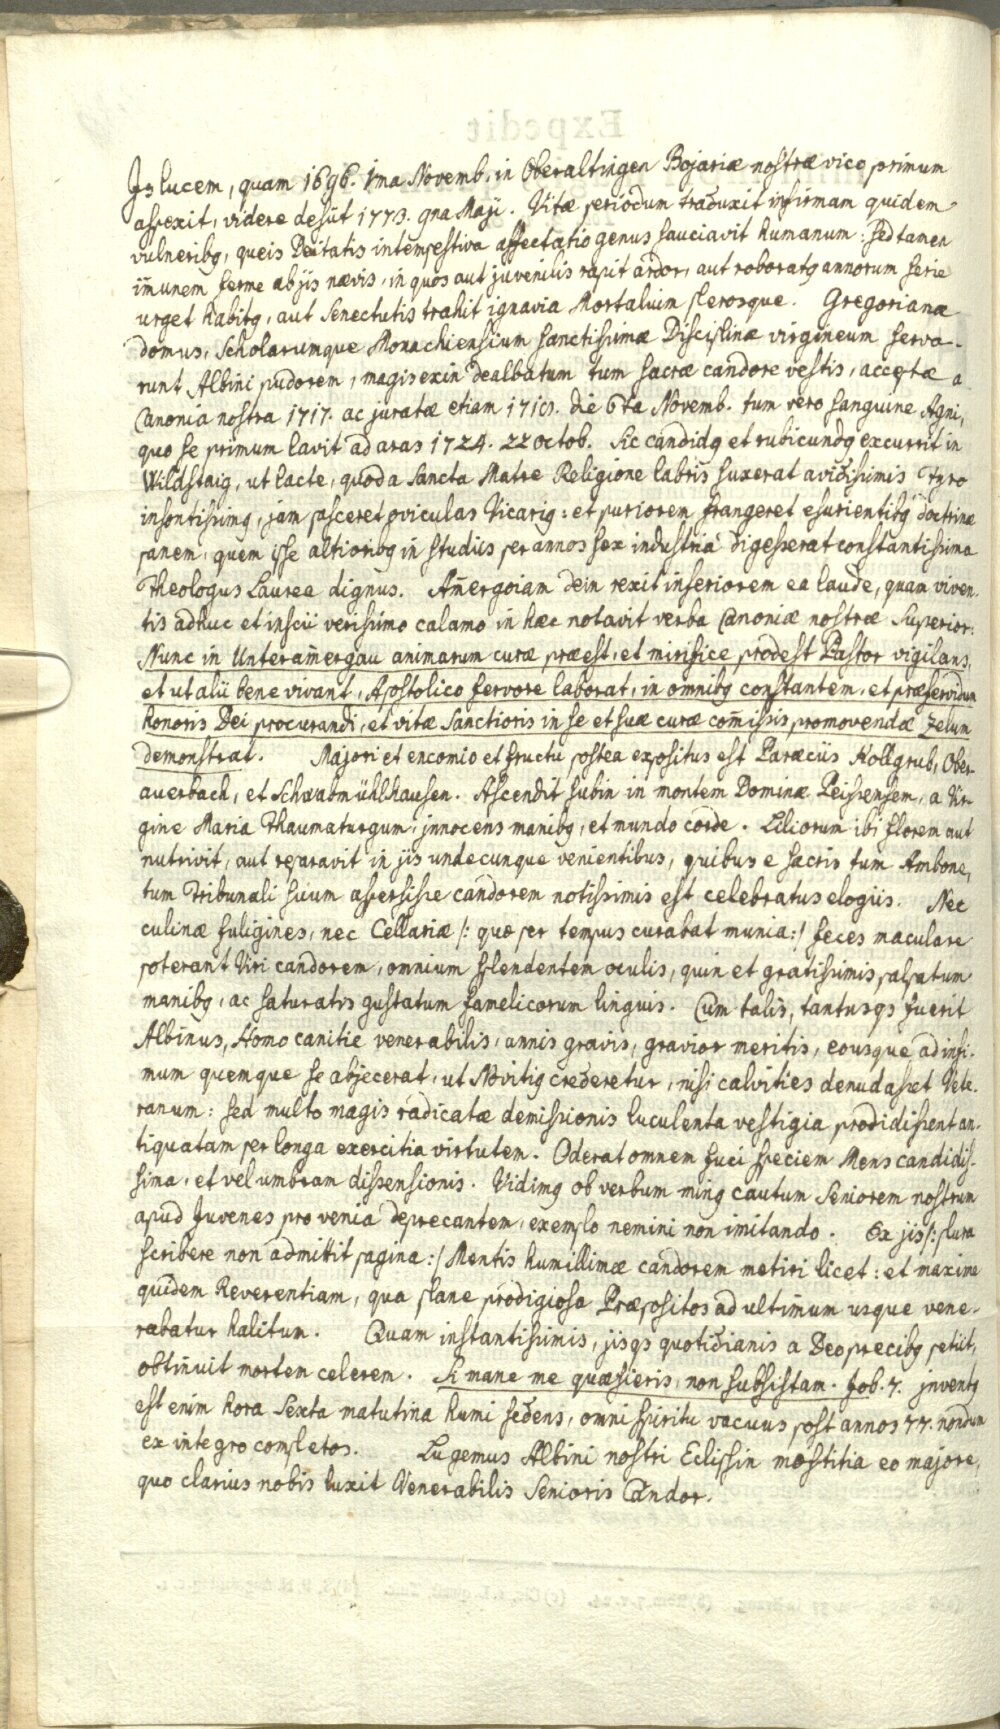 In lucem, quam 1696. 1ma Novemb. in Oberaltingen Bojariæ nostræ vico primum
aspexit, videre desiit 1773. 9na Maji. Vitæ periodum traduxit infirmam quidem
vulneribꝰ, queis Deitatis intempestiva affectatio genus sauciavit humanum: sed tamen
im̄unem ferme ab ijs nævis, in quos aut juvenilis rapit ardor, aut roboratꝰ annorum serie
urget habitꝰ, aut Senectutis trahit ignavia Mortalium plerosque. Gregorianæ
domus, Scholarumque Monachiensium sanctissimæ Disciplinæ virgineum serva-
runt Albini pudorem, magis exin dealbatum tum sacræ candore vestis, acceptæ a
Canonia nostra 1717. ac juratæ etiam 1719. die 6ta Novemb. tum vero sanguine Agni,
quo se primum lavit ad aras 1724. 22 octob. Sic candidꝰ et rubicundꝰ excurrit in
Wildstaig, ut lacte, quod a Sancta Matre Religione labris suxerat avidissimis Tyro
insontissimꝰ, jam pasceret oviculas Vicariꝰ: et puriorem frangeret esurientibꝰ doctrinæ
panem, quem ipse altioribꝰ in studiis per annos sex industria digesserat constantissima
Theologus Laurea dignus. Am̄ergoiam dein rexit inferiorem ea laude, quam viven-
tis adhuc et inscii verissimo calamo in hæc notavit verba Canoniæ nostræ Superior:
Nunc in Unteram̄ergau animarum curæ præest, et mirifice prodest Pastor vigilans,
et ut alii bene vivant, Apostolico fervore laborat, in omnibꝰ constantem, et præfervidum
honoris Dei procurandi, et vitæ Sanctioris in se et suæ curæ com̄issis promovendæ Zelum
demonstrat. Majori et encomio et fructu postea expositus est Paræciis Kollgrub, Ober-
auerbach, et Schwabmühlhausen. Ascendit subin in montem Dominæ Peissensem, a Vir-
gine Maria Thaumaturgum, innocens manibꝰ, et mundo corde. Liliorum ibi florem aut
nutrivit, aut reparavit in jis undecunque venientibus, quibus e sacris tum Ambone,
tum Tribunali suum aspersisse candorem notissimis est celebratus elogiis. Nec
culinæ fuligines, nec Cellariæ /: quæ per tempus curabat munia:/ feces maculare
poterant Viri candorem, omnium splendentem oculis, quin et gratissimis palpatum
manibꝰ, ac saturatis gustatum famelicorum linguis. Cum talis, tantusqs fuerit
Albinus, Homo canitie venerabilis, annis gravis, gravior meritis, eousque ad infi-
mum quemque se abjecerat, ut Novitiꝰ crederetur, nisi calvities denudasset Vete-
ranum: sed multo magis radicatæ demissionis luculenta vestigia prodidissent an-
tiquatam per longa exercitia virtutem. Oderat omnem fuci speciem Mens candidis-
sima, et vel umbram dissensionis. Vidimꝰ ob verbum minꝰ cautum Seniorem nostrum
apud Juvenes pro venia deprecantem, exemplo nemini non imitando. Ex jis /: plura
scribere non admittit pagina:/ Mentis humillimæ candorem metiri licet: et maxime
quidem Reverentiam, qua plane prodigiosa Præpositos ad ultimum usque vene-
rabatur halitum. Quam instantissimis, jisqs quotidianis a Deo precibꝰ petiit,
obtinuit mortem celerem. Si mane me quæsieris, non subsistam. Job. 7. inventꝰ
est enim hora Sexta matutina humi sedens, omni spiritu vacuus post annos 77. nondum
ex integro completos. Lugemus Albini nostri Eclipsin mœstitia eo majore,
quo clarius nobis luxit Venerabilis Senioris Candor.